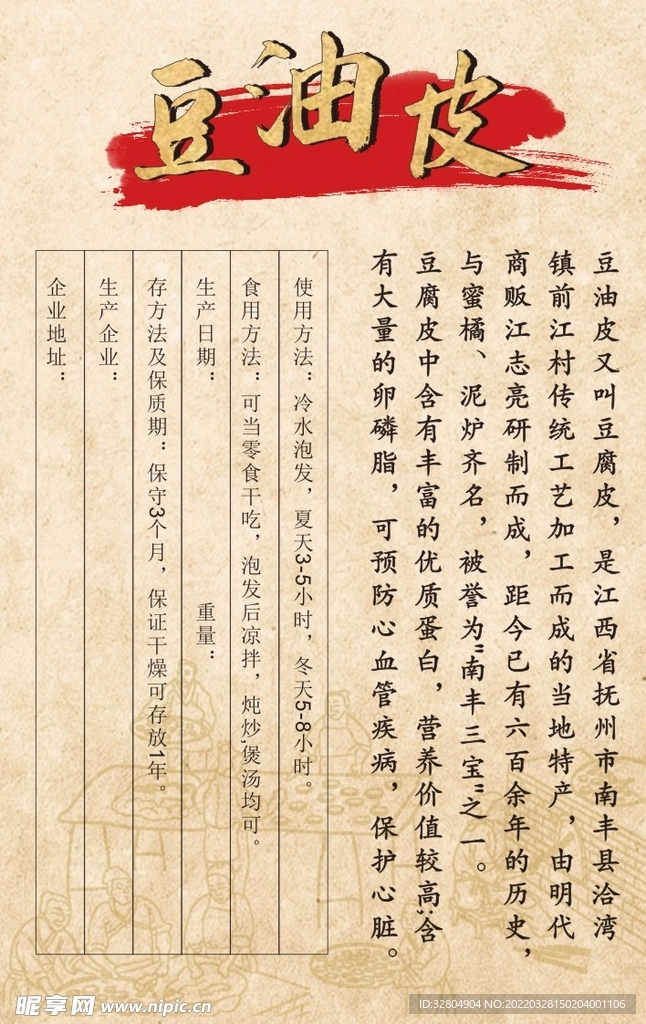 豆油皮
豆油皮又叫豆腐皮，是江西省抚州市南丰县洽湾
镇前江村传统工艺加工而成的当地特产，由明代
商贩江志亮研制而成，距今已有六百余年的历史，
与蜜橘、泥炉齐名，被誉为"南丰三宝"之一。
豆腐皮中含有丰富的优质蛋白，营养价值较高;含
有大量的卵磷脂，可预防心血管疾病，保护心脏。
使用方法：冷水泡发，夏天3-5小时，冬天5-8小时。
食用方法：可当零食干吃，泡发后凉拌，炖炒,煲汤均可。
生产日期： 重量：
存方法及保质期：保守3个月，保证干燥可存放1年。
生产企业：
企业地址：
昵享网 www.nipic.cn
ID:32804904 NO:20220328150204001106